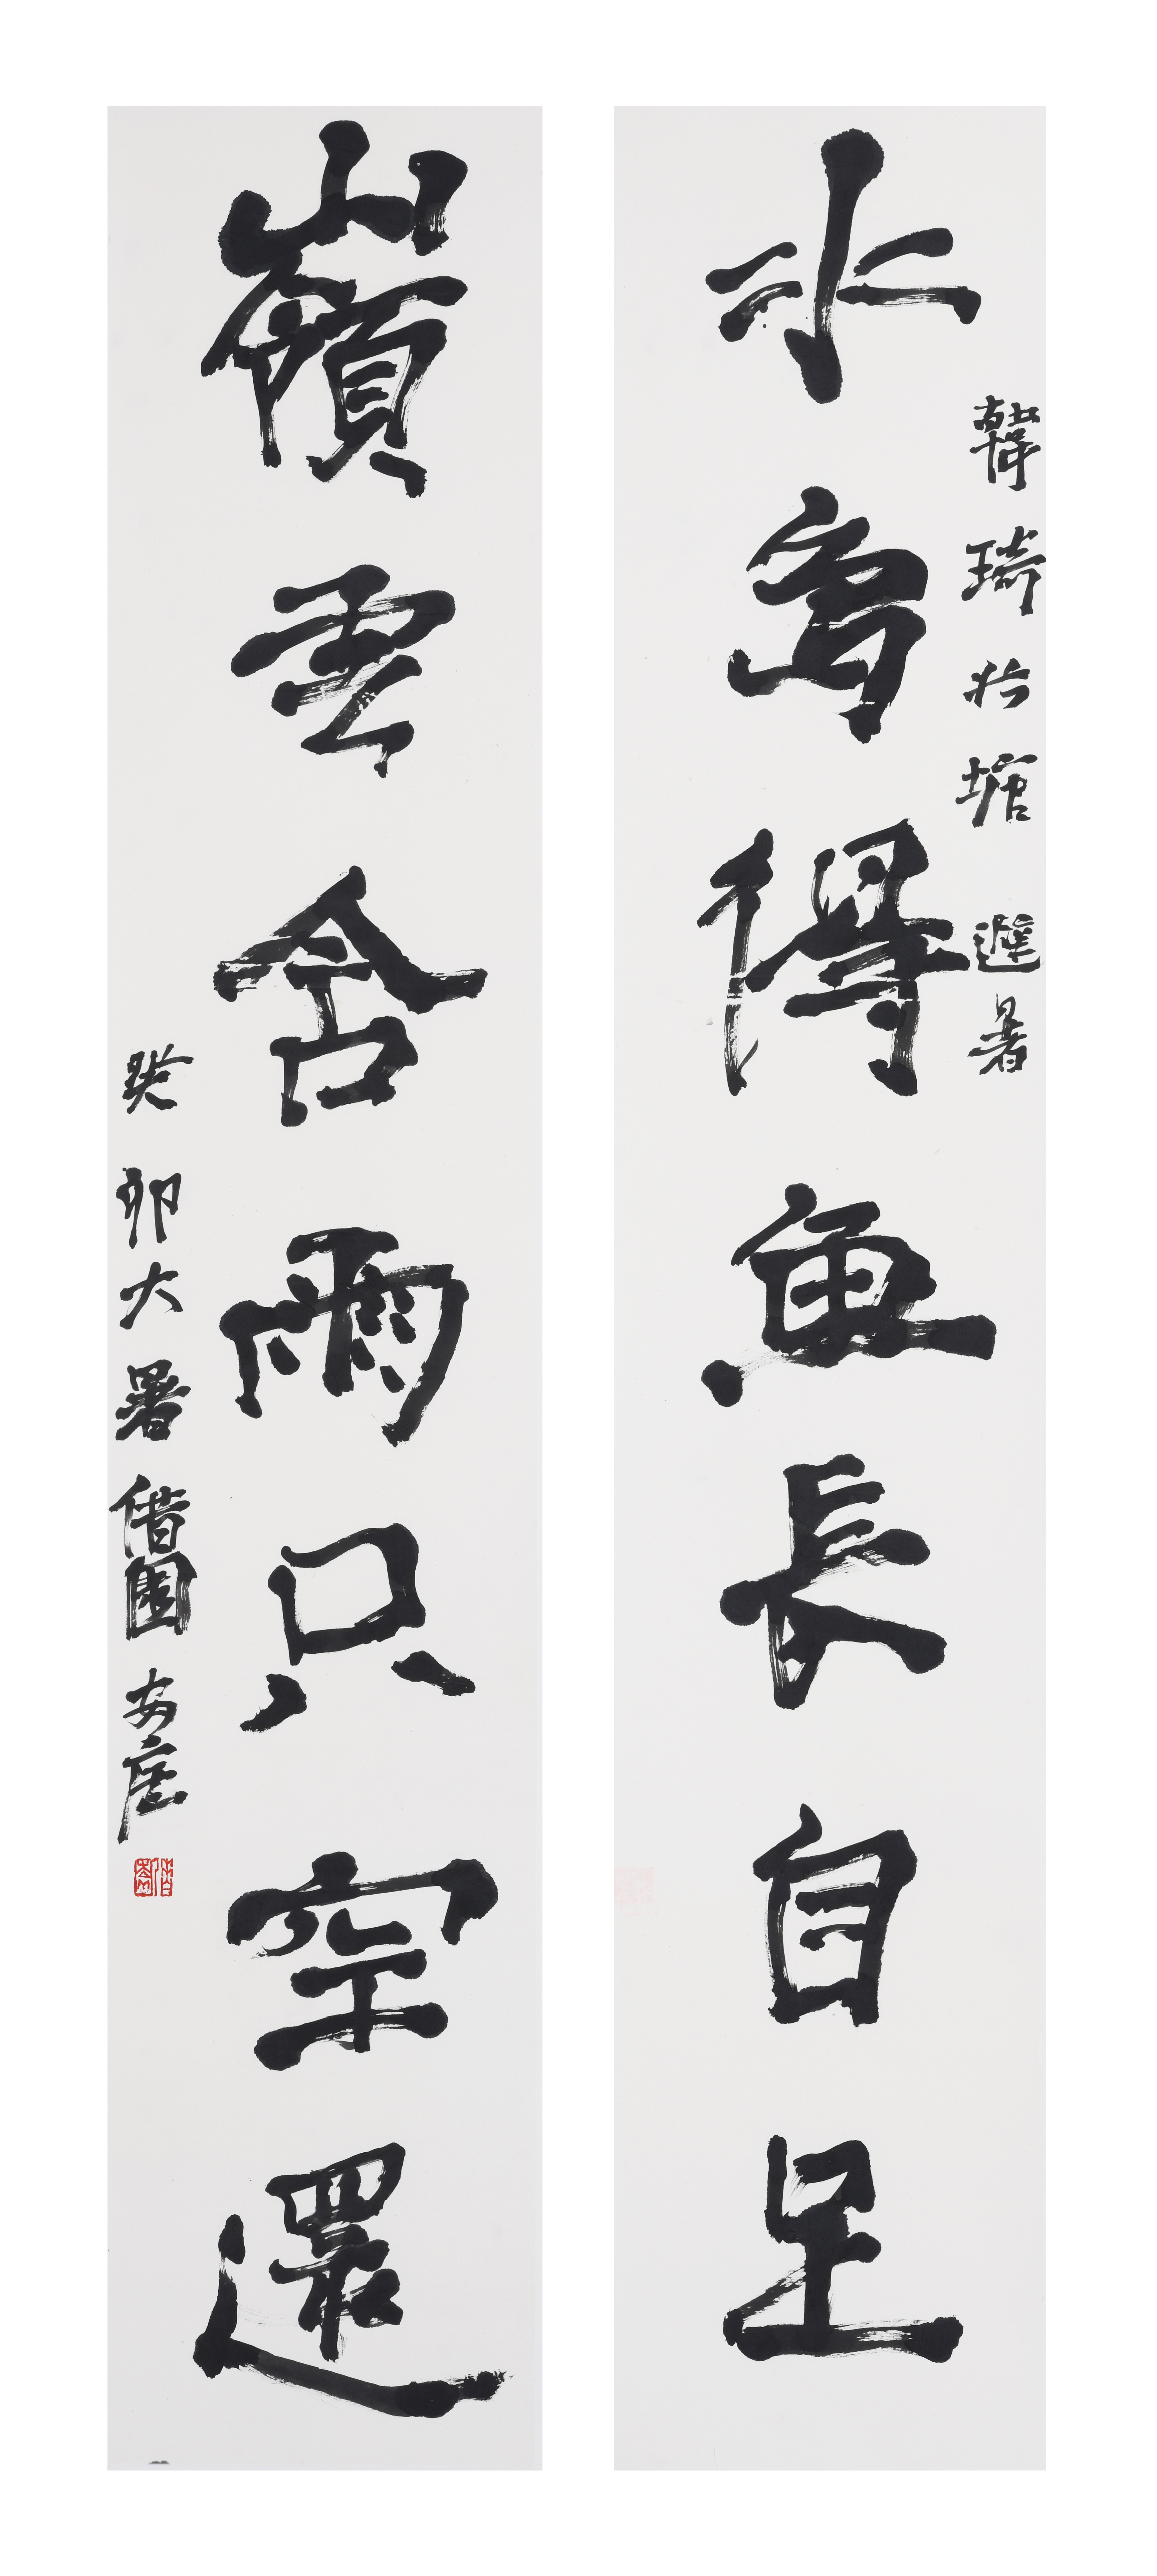 水鳥得魚長自足
韓琦北塘避暑
嶺雲含雨只空還
癸卯大暑借園安
借園